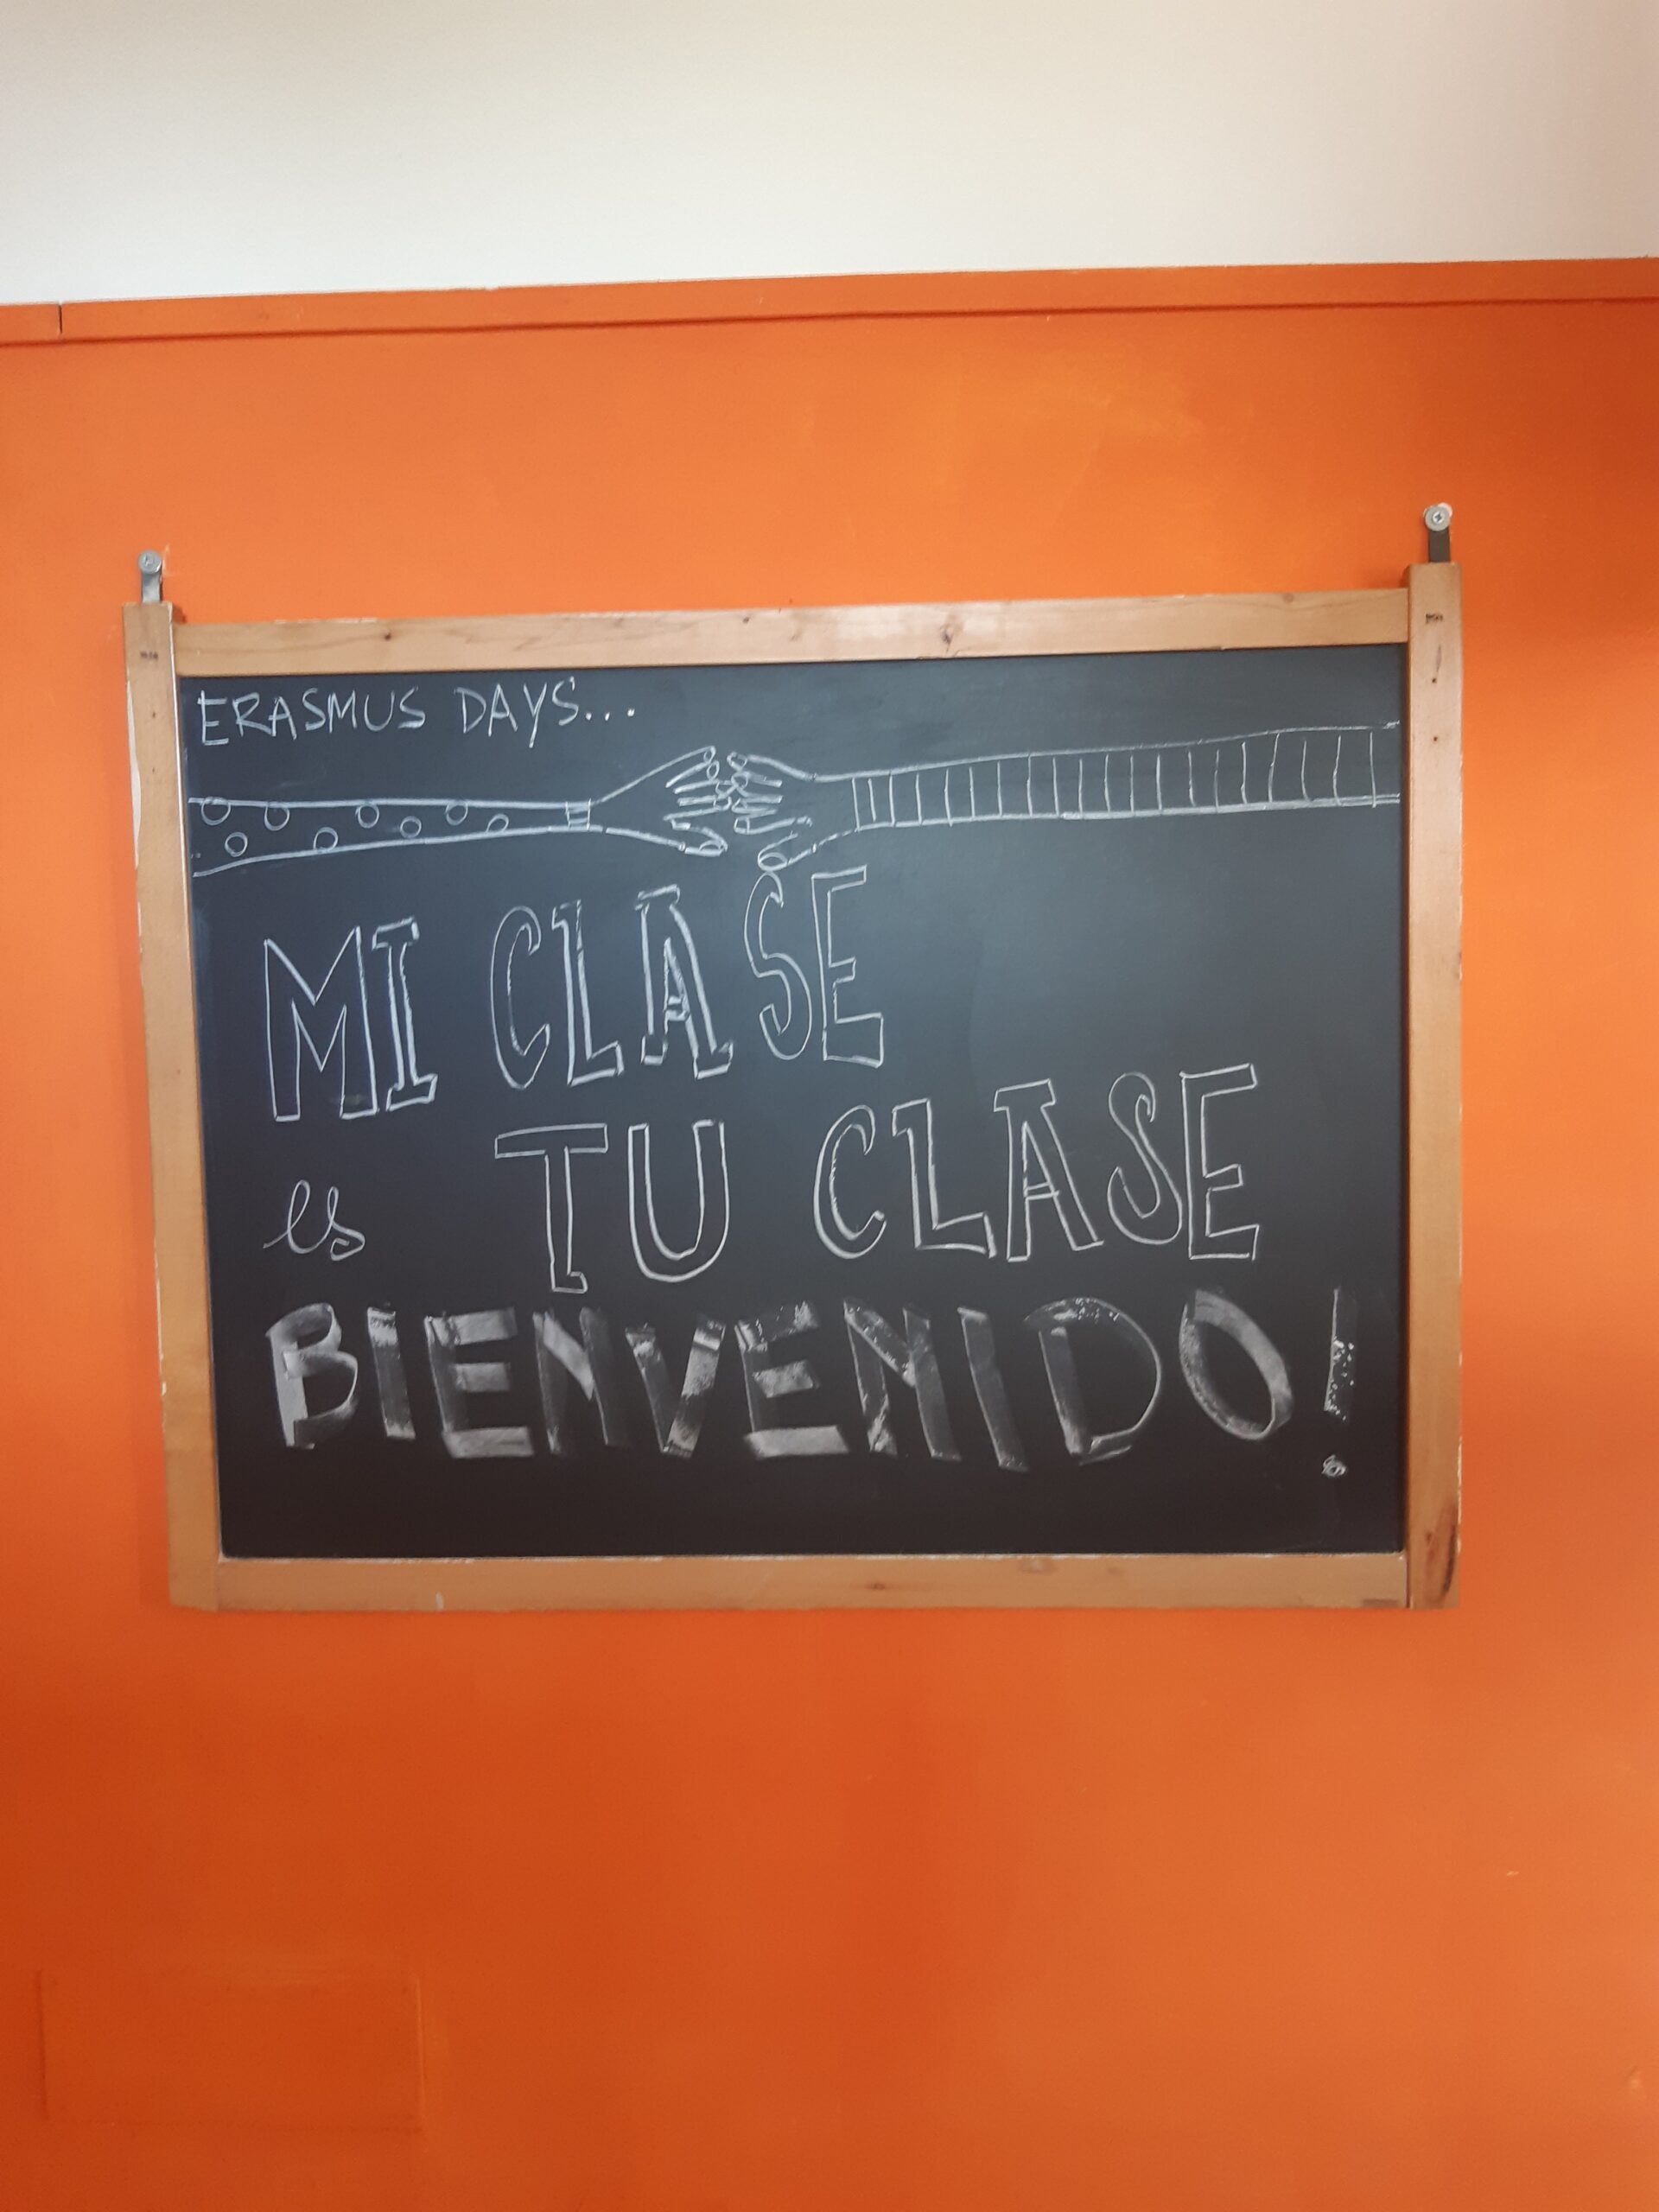 ERASMUS DAYS...
MI CLASE
es TU CLASE
BIENVENIDO!